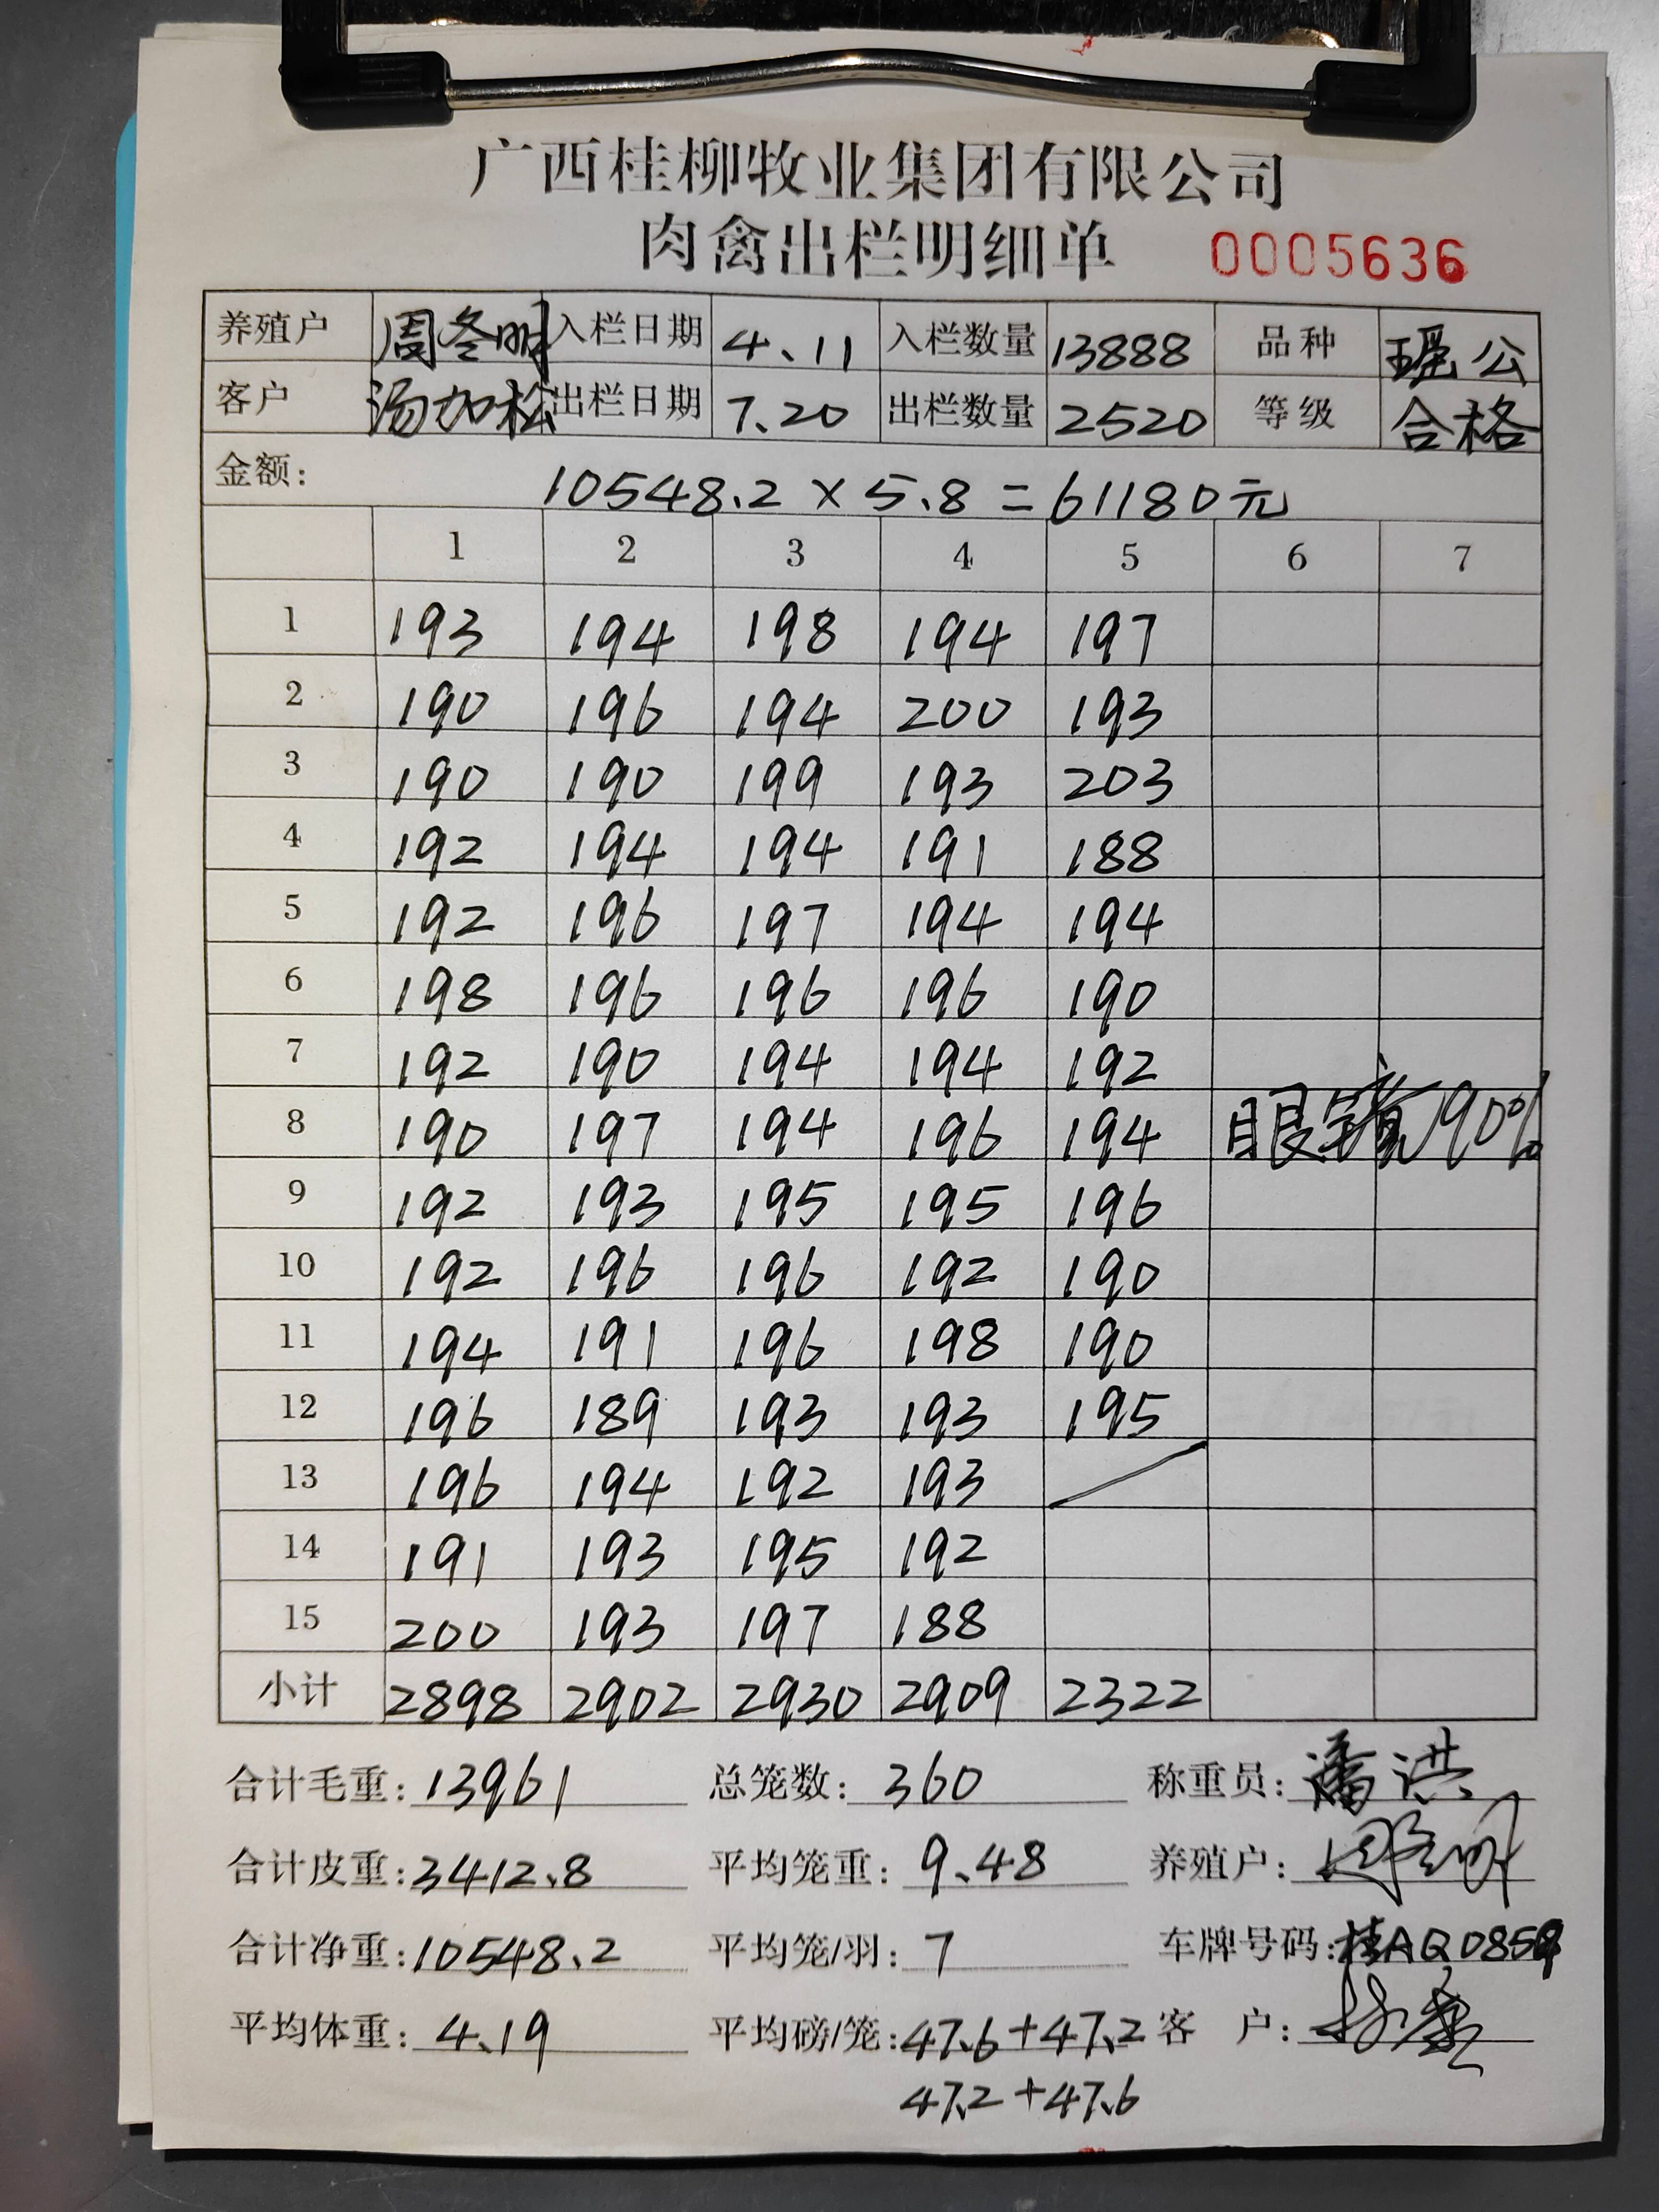 广西桂柳牧业集团有限公司
肉禽出栏明细单 0005636
养殖户 周冬明 入栏日期 4.11 入栏数量 13888 品种 瑶公
客户 汤加松 出栏日期 7.20 出栏数量 2520 等级 合格
金额: 10548.2 × 5.8 = 61180元
1 2 3 4 5 6 7
1 193 194 198 194 197
2 190 196 194 200 193
3 190 190 199 193 203
4 192 194 194 191 188
5 192 196 197 194 194
6 198 196 196 196 190
7 192 190 194 194 192
8 190 197 194 196 194 眼 90%
9 192 193 195 195 196
10 192 196 196 192 190
11 194 191 196 198 190
12 196 189 193 193 195
13 196 194 192 193
14 191 193 195 192
15 200 193 197 188
小计 2898 2902 2930 2909 2322
合计毛重: 13961 总笼数: 360 称重员: 潘洪
合计皮重: 3412.8 平均笼重: 9.48 养殖户:
合计净重: 10548.2 平均笼/羽: 7 车牌号码: 桂AQ0859
平均体重: 4.19 平均磅/笼: 47.6+47.2 客 户:
47.2+47.6